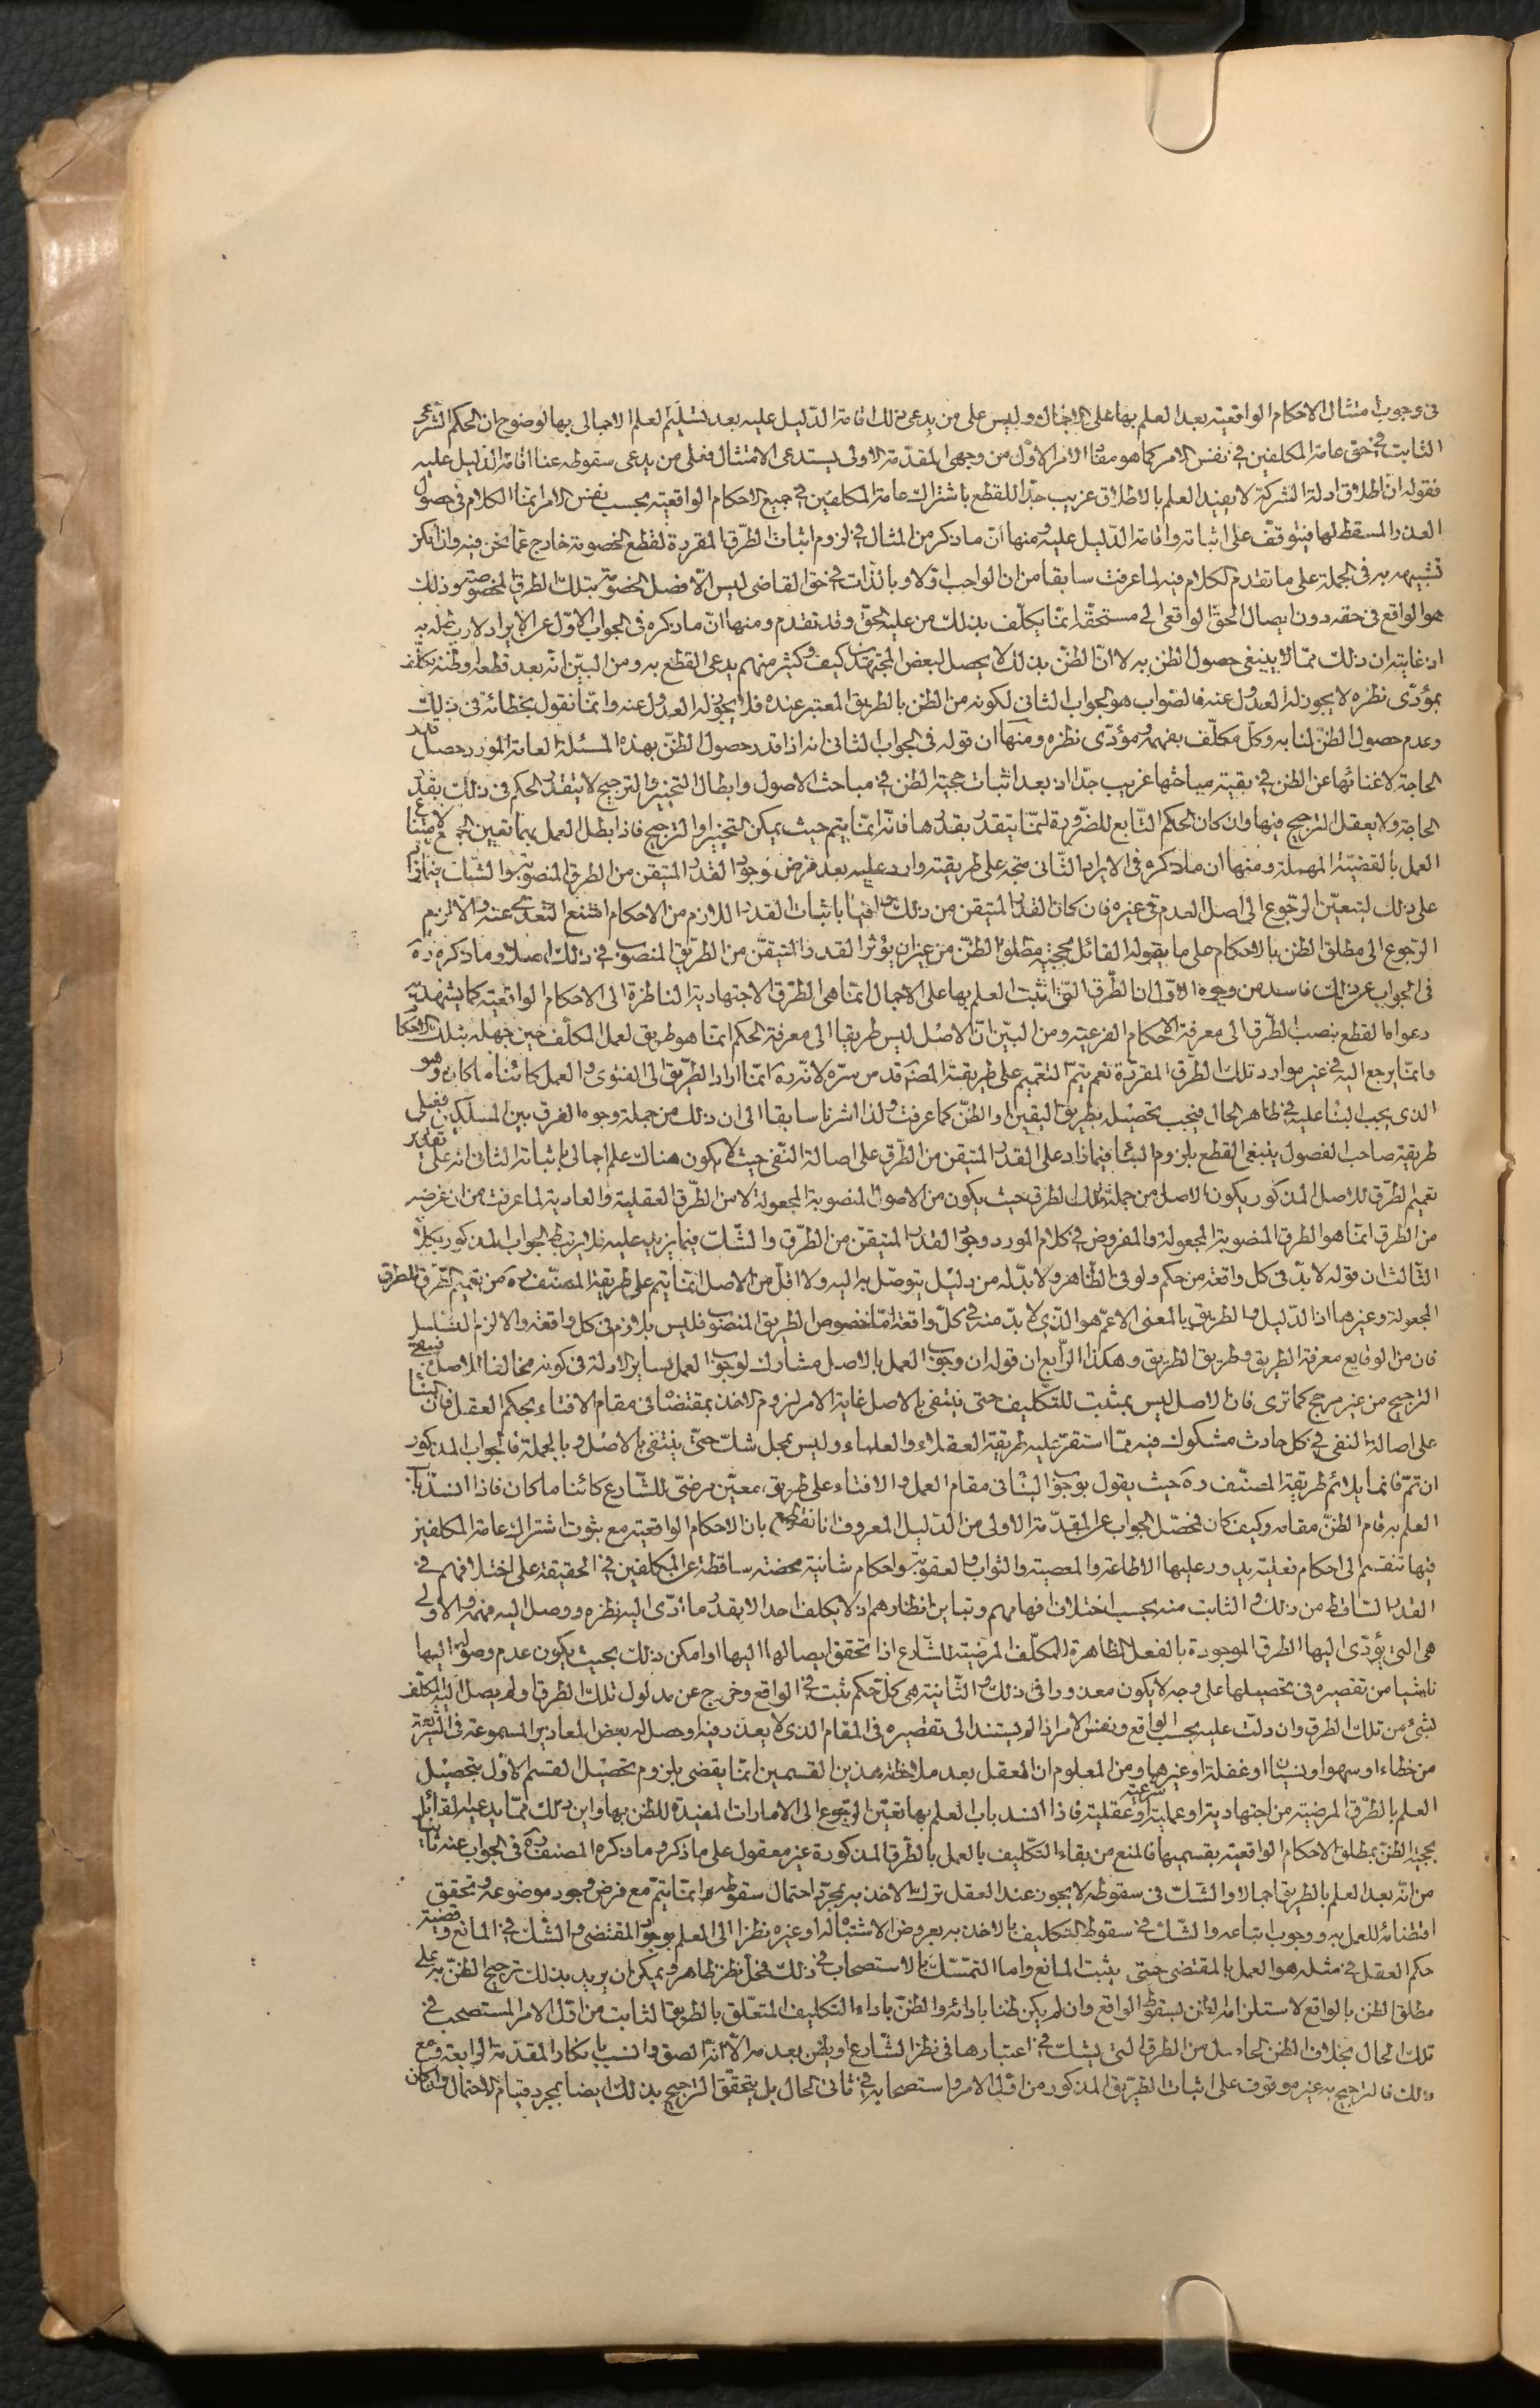 في وجوب امتثال الاحكام الواقعية بعد العلم بها على الاجمال وليس على من يدعى ذلك اقامة الدليل عليه بعد تسليم العلم الاجمالى بها لوضوح ان الحكم الشرعى
الثابت في حق عامة المكلفين في نفس الامر كما هو مفاد الامر الاول من وجهى المقدمة الاولى يستدعى الامتثال فعلى من يدعى سقوطه عنا اقامة الدليل عليه
فقوله ان اطلاق ادلة الشركة لا يفيد العلم بالاطلاق غريب جدّا للقطع باشتراك عامة المكلفين في جميع الاحكام الواقعية بحسب نفس الامر انما الكلام في حصول
العذر المسقط لها فيتوقف على اثباته واقامة الدليل عليه ومنها انّ ما ذكر من المثال في لزوم اثبات الطرق المقررة لقطع الخصومة خارج عما نحن فيه وان امكن
تشبيهه به في الجملة على ما تقدم الكلام فيه لما عرفت سابقا من ان الواجب اوّلا وبالذات في حق القاضى ليس الّا فصل الخصومة بتلك الطرق المخصوصة وذلك
هو الواقع في حقه دون ايصال الحق الواقعى الى مستحقّه انما يكلّف بذلك من عليه الحق وقد تقدم ومنها انّ ما ذكره في الجواب الاوّل عن الايراد لا ربط له به
اذ غايته ان ذلك ممّا لا ينبغى حصول الظن به لا انّ الظنّ بذلك لا يحصل لبعض المجتهدين كيف وكثير منهم يدعى القطع به ومن البيّن انّه بعد قطعه او ظنه يكلّف
بمؤدّى نظره لا يجوز له العدول عنه فالصواب هو الجواب الثانى لكونه من الظن بالطريق المعتبر عنده فلا يجوز له العدول عنه وانما نقول بخطائه في ذلك
وعدم حصول الظنّ لنا به وكلّ مكلّف بفهمه ومؤدّى نظره ومنها ان قوله في الجواب الثانى انه اذا قدر حصول الظنّ بهذه المسئلة لعامة المورد حصل قدر
الحاجة لاغنائها عن الظن في بقية مباحثها غريب جدّا اذ بعد اثبات حجية الظن في مباحث الاصول وابطال التخيير والترجيح لا يتقدّر الحكم في ذلك بقدر
الحاجة ولا يعقل الترجيح منها وان كان الحكم التابع للضرورة انما يتقدر بقدرها فانّه انمّا يتم حيث يمكن التخيير او الترجيح فاذا بطل العمل بهما تعين الجميع لامتناع
العمل بالقضيّة المهملة ومنها ان ما ذكره في الايراد الثّانى متجه على طريقته وارد عليه بعد فرض وجود القدر المتيقن من الطرق المنصوبة والشّك فيما زاد
على ذلك لتعيّن الرجوع الى اصل العدم في غيره فان كان القدر المتيقن من ذلك وافيا باثبات القدر اللازم من الاحكام امتنع التعدّى عنه والا لزم
الرجوع الى مطلق الظن بالاحكام على ما يقوله القائل بحجية مطلق الظنّ من غير ان يؤثر القدر المتيقّن من الطريق المنصوب في ذلك اصلا وما ذكره ره
في الجواب عن ذلك فاسد من وجوه الاوّل ان الطّرق الّتى ثبت العلم بها على الاجمال انما هى الطّرق الاجتهادية الناظرة الى الاحكام الواقعية كما يشهد به
دعواه القطع بنصب الطّرق الى معرفة الاحكام الفرعية ومن البيّن انّ الاصل ليس طريقا الى معرفة الحكم انمّا هو طريق لعمل المكلّف حين جهله بتلك الاحكام
وانمّا يرجع اليه في غير موارد تلك الطّرق المقرّرة نعم يتمّ التعميم على طريقة المصنف قدس سرّه لانّه ره انمّا اراد الطّريق الى الفتوى والعمل كائنا ما كان وهو
الذى يجب البناء عليه في ظاهر الحال فيجب تحصيله بطريق اليقين او الظنّ كما عرفت ولذا اشرنا سابقا الى ان ذلك من جملة وجوه الفرق بين المسلكين فعلى
طريقة صاحب الفصول ينبغى القطع بلزوم البناء فيما زاد على القدر المتيقن من الطّرق على اصالة النّفى حيث لا يكون هناك علم اجمالى باثباته الثانى انه على تقدير
تعميم الطّرق للاصل المذكور يكون الاصل من جملة تلك الطرق حيث يكون من الاصول المنصوبة المجعولة لا من الطّرق العقلية والعادية لما عرفت من ان غرضه
من الطرق انمّا هو الطرق المنصوبة المجعولة والمفروض في كلام المورد وجود القدر المتيقن من الطّرق والشّك فيما يزيد عليه فلا يرتبط الجواب المذكور بكلامه
الثّالث ان قوله لا بدّ في كل واقعة من حكم ولو في الظّاهر ولا بدّ له من دليل يتوصّل به اليه ولا اقلّ من الاصل انمّا يتم على طريقة المصنّف ره من تعميم الطّرق للطرق
المجعولة وغيرها اذ الدّليل والطريق بالمعنى الاعمّ هو الذّى لا بدّ منه في كلّ واقعة امّا خصوص الطريق المنصوب فليس بلازم في كل واقعة والا لزم التسلسل
فان من الوقايع معرفة الطريق وطريق الطريق وهكذا الرّابع ان قوله ان وجوب العمل بالاصل مشارك لوجوب العمل بساير الادلة في كونه مخالفا للاصل فيبقى
الترجيح من غير مرجح كما ترى فان الاصل ليس بمثبت للتكليف حتى ينتفى بالاصل غاية الامر لزوم الاخذ بمقتضاه في مقام الافتاء بحكم العقل فان البناء
على اصالة النفى في كل حادث مشكوك فيه ممّا استقرّ عليه طريقة العقلاء والعلماء وليس محل شكّ حتّى ينتفى بالاصل وبالجملة فالجواب المذكور
ان تمّ فانما يلائم طريقة المصنّف ره حيث يقول بوجوب البناء في مقام العمل والافتاء على طريق معيّن مرضىّ للشّارع كائنا ما كان فاذا انسدّ باب
العلم به قام الظنّ مقامه وكيف كان فمحصّل الجواب عن المقدّمة الاولى من الدّليل المعروف انا نقول بان الاحكام الواقعية مع ثبوت اشتراك عامة المكلفين
فيها تنقسم الى احكام فعلية يدور عليها الاطاعة والمعصية والثواب والعقوبة واحكام شانية محضة ساقطة عن المكلفين في الحقيقة على اختلافهم في
القدر السّاقط من ذلك والثابت منه بحسب اختلاف افهامهم وتباين انظارهم اذ لا يكلف احد الا بقدر ما ادّى اليه نظره ووصل اليه فهمه والاولى
هى التى يؤدّى اليها الطرق الموجودة بالفعل الظاهرة للمكلّف المرضية للشّارع اذا تحقق ايصالها اليها او امكن ذلك بحيث يكون عدم وصوله اليها
ناشيا من تقصيره في تحصيلها على وجه لا يكون معذورا في ذلك والثّانية هى كلّ حكم ثبت في الواقع وخرج عن مدلول تلك الطرق او لم يصل اليه المكلّف
لشىء من تلك الطرق وان دلّت عليه بحسب الواقع ونفس الامر اذا لم يستند الى تقصيره في المقام الذى لا يعذر فيه او حصل له بعض المعاذير المسموعة في الشريعة
من خطاء او سهو او نسيان او غفلة او غيرها ومن المعلوم ان العقل بعد ملاحظة هذين القسمين انمّا يقضى بلزوم تحصيل القسم الاوّل بتحصيل
العلم بالطّرق المرضية من اجتهادية او عملية شرعية او عقلية فاذا انسد باب العلم بها تعيّن الرجوع الى الامارات المفيدة للظن بها واين ذلك ممّا يدعيه القائل
بحجية الظنّ بمطلق الاحكام الواقعية بقسميها فالمنع من بقاء التكليف بالعمل بالطّرق المذكورة غير معقول على ما ذكر وما ذكره المصنف ره في الجواب عنه ثانيا
من انّه بعد العلم بالطريق اجمالا والشّك في سقوطه لا يجوز عند العقل ترك الاخذ به بمجرّد احتمال سقوطه وانمّا يتمّ مع فرض وجود موضوعه وتحقق
اقتضائه للعمل به ووجوب اتباعه والشّك في سقوط التكليف بالاخذ به بعروض الاشتباه له او غيره نظرا الى العلم بوجود المقتضى والشّك في المانع وقضية
حكم العقل في مثله هو العمل بالمقتضى حتى يثبت المانع واما التمسّك بالاستصحاب في ذلك فمحلّ نظر ظاهر ويمكن ان يريد بذلك ترجيح الظنّ به على
مطلق الظن بالواقع لاستلزامه الظن بسقوط الواقع وان لم يكن ظنا بادائه والظنّ باداء التكليف المتعلّق بالطريق الثابت من اوّل الامر المستصحب في
تلك الحال بخلاف الظن الحاصل من الطرق التى يشك في اعتبارها في نظر الشّارع او يظن بعدمه الّا انّه الصق وانسب بانكار المقدّمة الرابعة ومع
ذلك فالترجيح به غير موقوف على اثبات الطّريق المذكور من اوّل الامر واستصحابه في ثانى الحال بل يتحقّق الترجيح بذلك ايضا بمجرد قيام الاحتمال وان كان